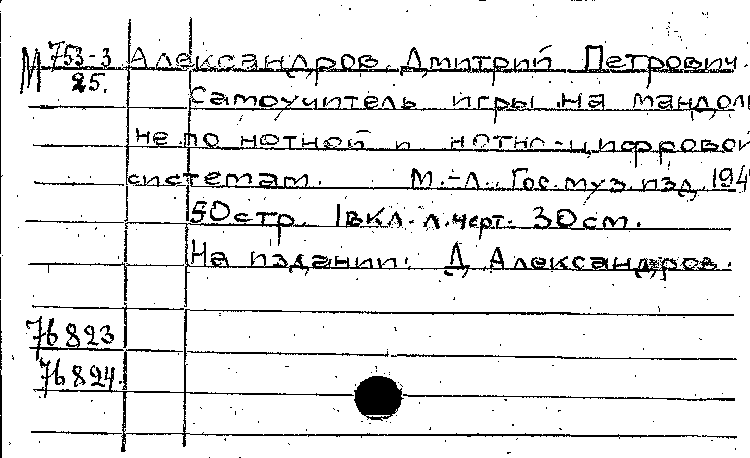 М 753-3 Александров Дмитрий Петрович.
25. Самоучитель игры на мандоли
не по нотной и нотно-цифровой
системам. М.-Л., Гос. муз. изд,
50 стр. 1 вкл. л. черт. 30 см.
На издании: Д Александров.
76823
76824.